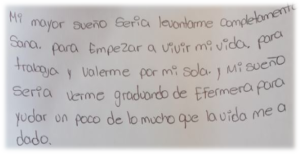 Mi mayor sueño Seria levantarme completamente
Sana. para Empezar a vivir mi vida, para
trabaja y valerme por mi sola, y Mi sueño
seria verme graduando de Efermera para
yudar un poco de lo mucho que la vida me a
dado.